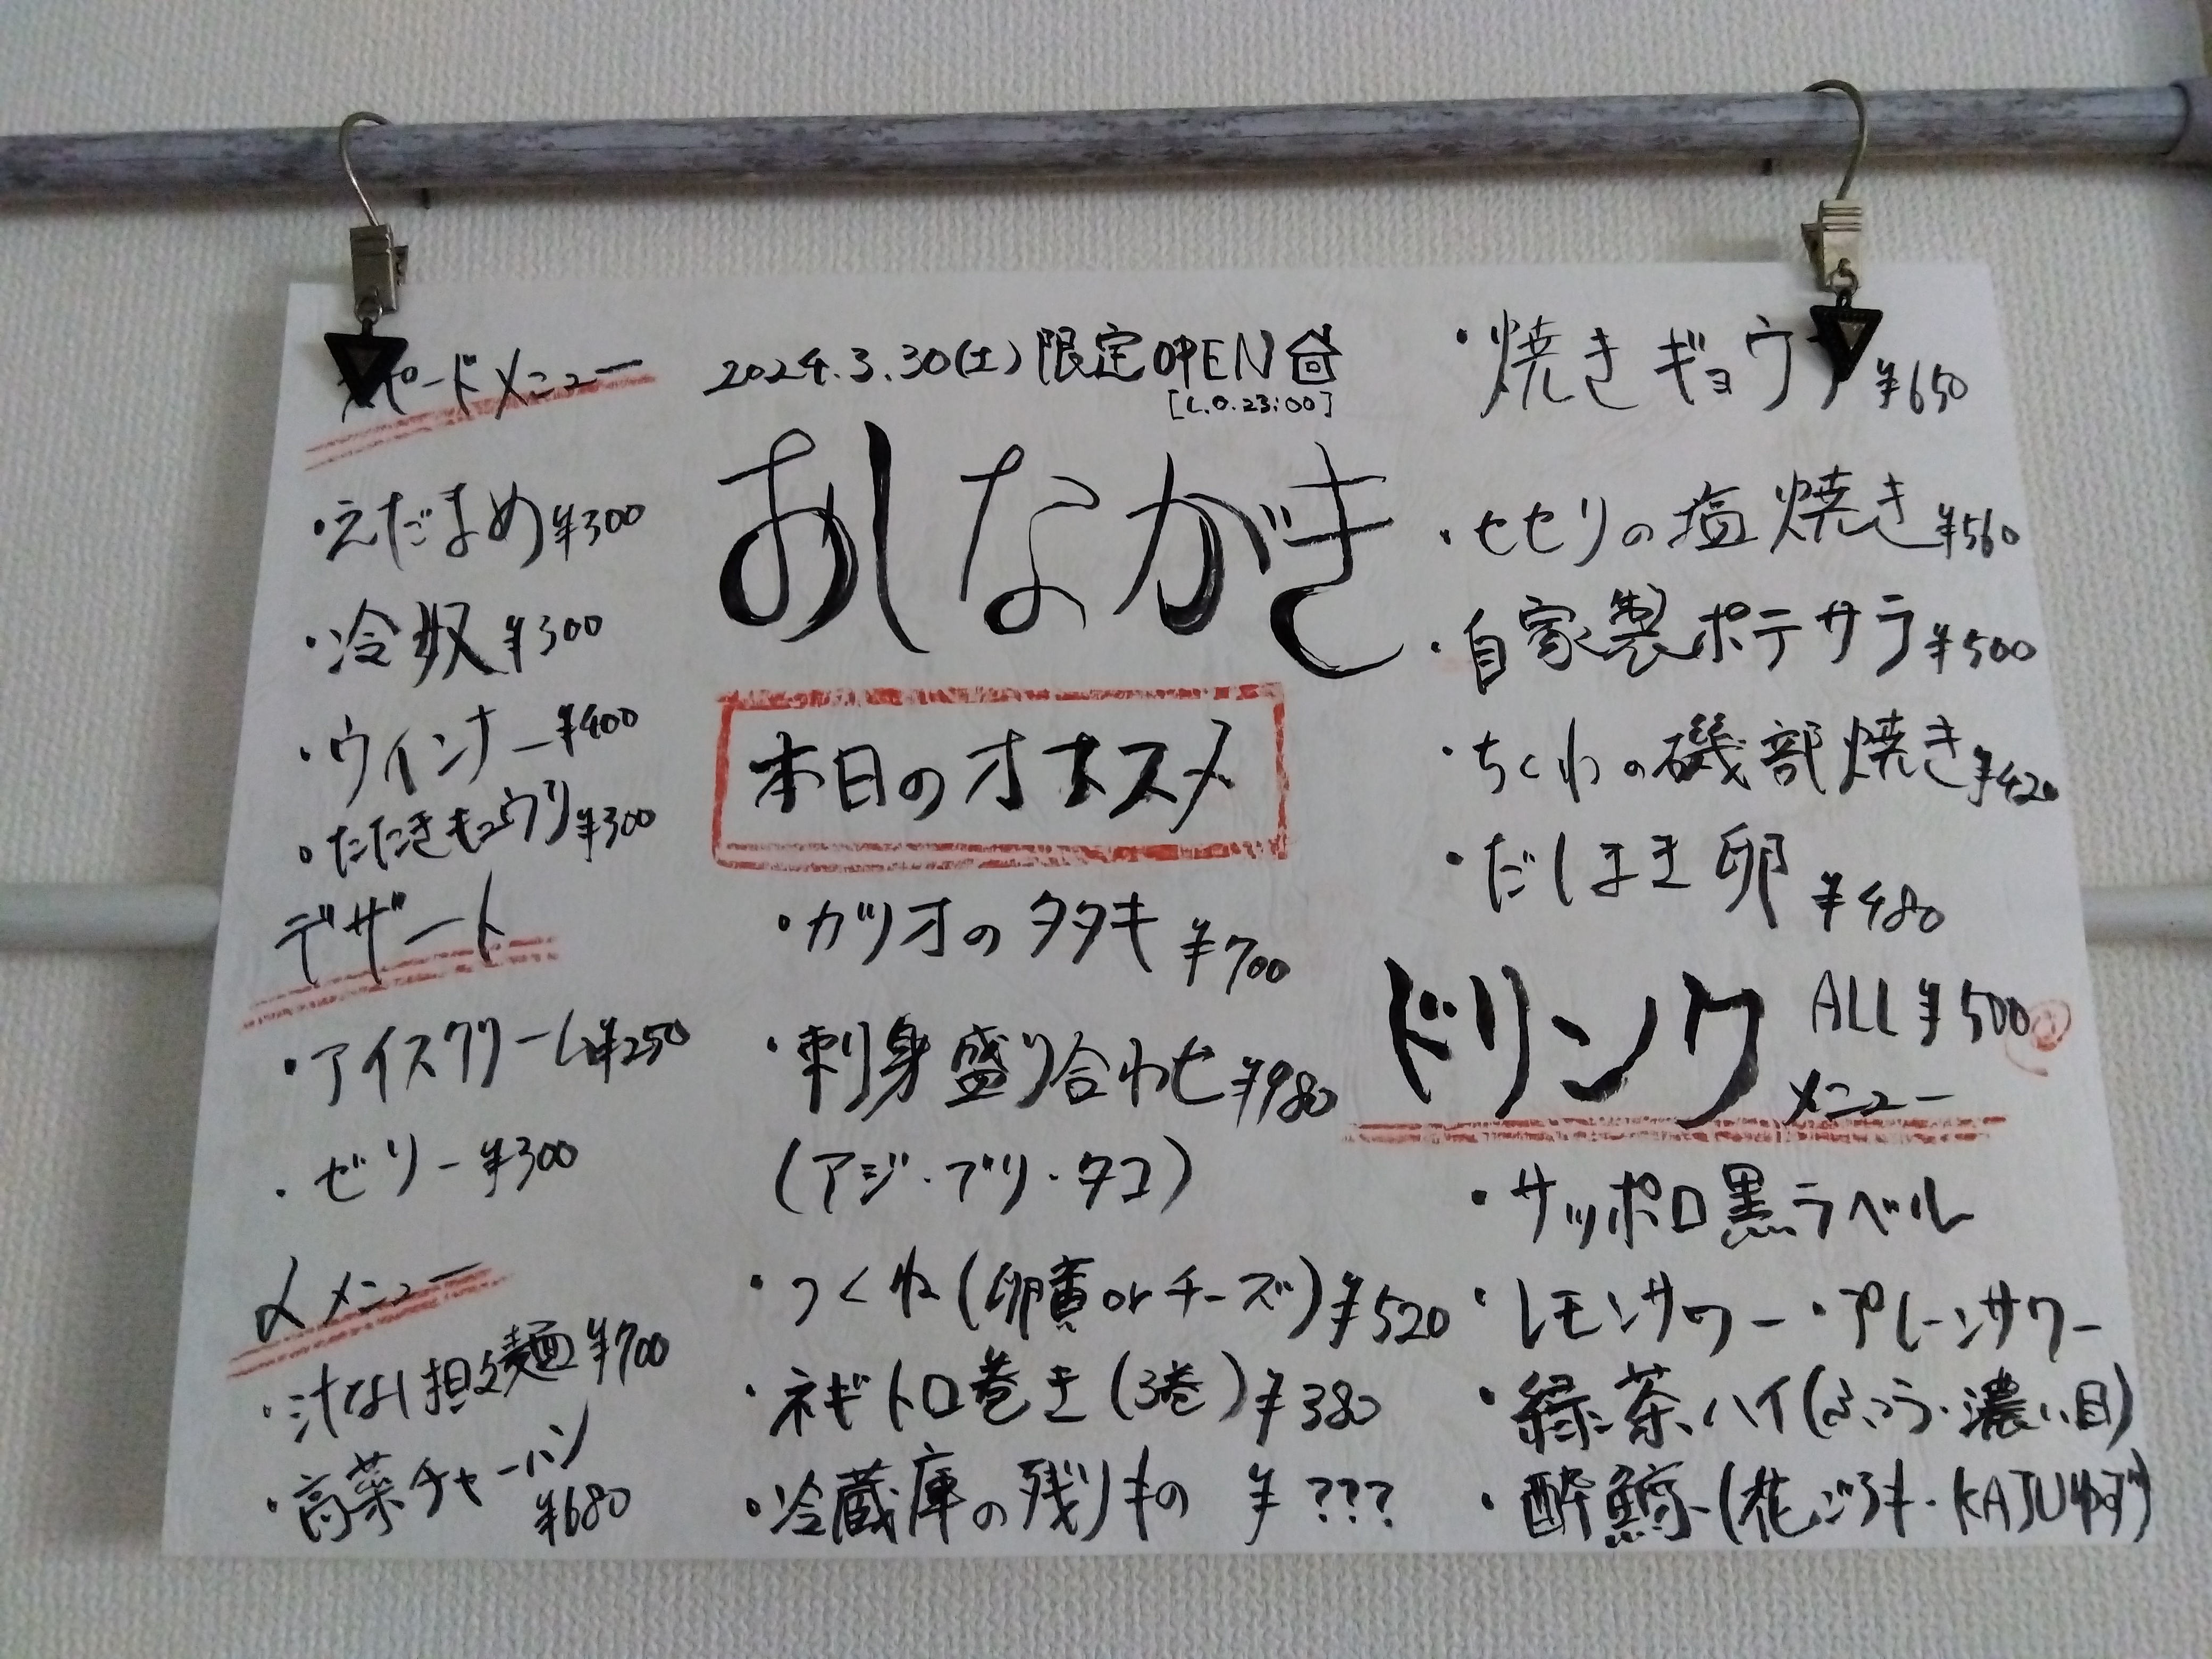 スピードメニュー
・えだまめ ¥300
・冷奴 ¥300
・ウインナー ¥400
・たたききゅうり ¥300
デザート
・アイスクリーム ¥250
・ゼリー ¥300
〆メニュー
・汁なし担々麺 ¥700
・高菜チャーハン
¥680
2024.3.30(土)限定OPEN
[L.O.23:00]
おしながき
本日のオススメ
・カツオのタタキ ¥700
・刺身盛り合わせ ¥980
(アジ・ブリ・タコ)
・つくね(卵黄orチーズ) ¥520
・ネギトロ巻き(3巻) ¥380
・冷蔵庫の残りもの ¥???
・焼きギョウザ ¥650
・セセリの塩焼き ¥560
・自家製ポテサラ ¥500
・ちくわの磯部焼き ¥420
・だしまき卵 ¥480
ドリンクメニュー ALL ¥500
・サッポロ黒ラベル
・レモンサワー ・プレーンサワー
・緑茶ハイ(ふつう・濃い目)
・酔鯨(花ごろも・KAJUゆず)